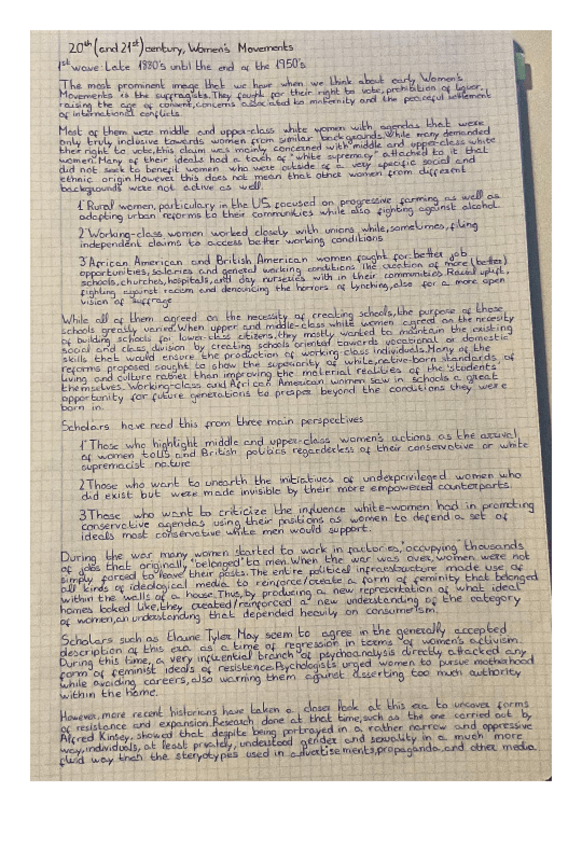 20th (and 21st) century, Women's Movements
1st wave: Late 1880's until the end of the 1950's
The most prominent image that we have when we think about early Women's
Movements is the suffragists. They fought for their right to vote, prohibition of liquor,
raising the age of consent, concerns associated to maternity and the peaceful settlement
of international conflicts.
Most of them were middle and upper-class white women with agendas that were
only truly inclusive towards women from similar backgrounds. While many demanded
their right to vote, this claim was mainly concerned with middle and upper-class white
women. Many of their ideals had a touch of "white supremacy" attached to it that
did not seek to benefit women who were outside of a very specific social and
ethnic origin. However this does not mean that other women from different
backgrounds were not active as well.
1 Rural women, particulary in the US focused on progressive farming as well as
adapting urban reforms to their communities while also fighting against alcohol.
2 Working-class women worked closely with unions while, sometimes, filing
independent claims to access better working conditions
3 African American and British American women fought for better job
opportunities, salaries and general working conditions The creation of more (better)
schools, churches, hospitals, and day nurseries with in their communities. Racial uplift,
fighting against racism and denouncing the horrors of lynching, also for a more open
vision of suffrage
While all of them agreed on the necessity of creating schools, the purpose of those
schools greatly varied. When upper and middle-class white women agreed on the necesity
of building schools for lower-class citizens, they mostly wanted to maintain the existing
social and class division by creating schools oriented towards vocational or domestic
skills that would ensure the production of working-class individuals. Many of the
reforms proposed sought to show the superiority of white, native-born standards, of
living and culture rather than improving the material realities of the students
themselves. Working-class and African American women saw in schools a great
opportunity for future generations to prosper beyond the conditions they were
born in.
Scholars have read this from three main perspectives
1 Those who highlight middle and upper-class women's actions as the arrival
of women to US and British politics regardless of their conservative or white
supremacist nature
2 Those who want to unearth the initiatives of underprivileged women who
did exist but were made invisible by their more empowered counterparts.
3 Those who want to criticize the influence white-women had in promoting
conservative agendas using their positions as women to defend a set of
ideals most conservative white men would support.
During the war many women started to work in factories, occupying thousands
of jobs that originally, "belonged" to men. When the war was over, women were not
simply forced to leave their posts. The entire political infrastructure made use of
all kinds of ideological media to reinforce/create a form of feminity that belonged
within the walls of a house. Thus, by producing a new representation of what ideal
homes looked like, they created/reinforced a new understanding of the category
of women, an understanding that depended heavily on consumerism.
Scholars such as Elaine Tyler May seem to agree in the generally accepted
description of this era as a time of regression in terms of women's activism.
During this time, a very influential branch of psychoanalysis directly attacked any
form of feminist ideals of resistence. Psychologists urged women to pursue motherhood
while avoiding careers, also warning them against asserting too much authority
within the home.
However, more recent historians have taken a closer look at this era to uncover forms
of resistance and expansion. Research done at that time, such as the one carried out by
Alfred Kinsey, showed that despite being portrayed in a rather narrow and oppressive
way, individuals, at least privately, understood gender and sexuality in a much more
fluid way than the steryotypes used in advertisements, propaganda, and other media.